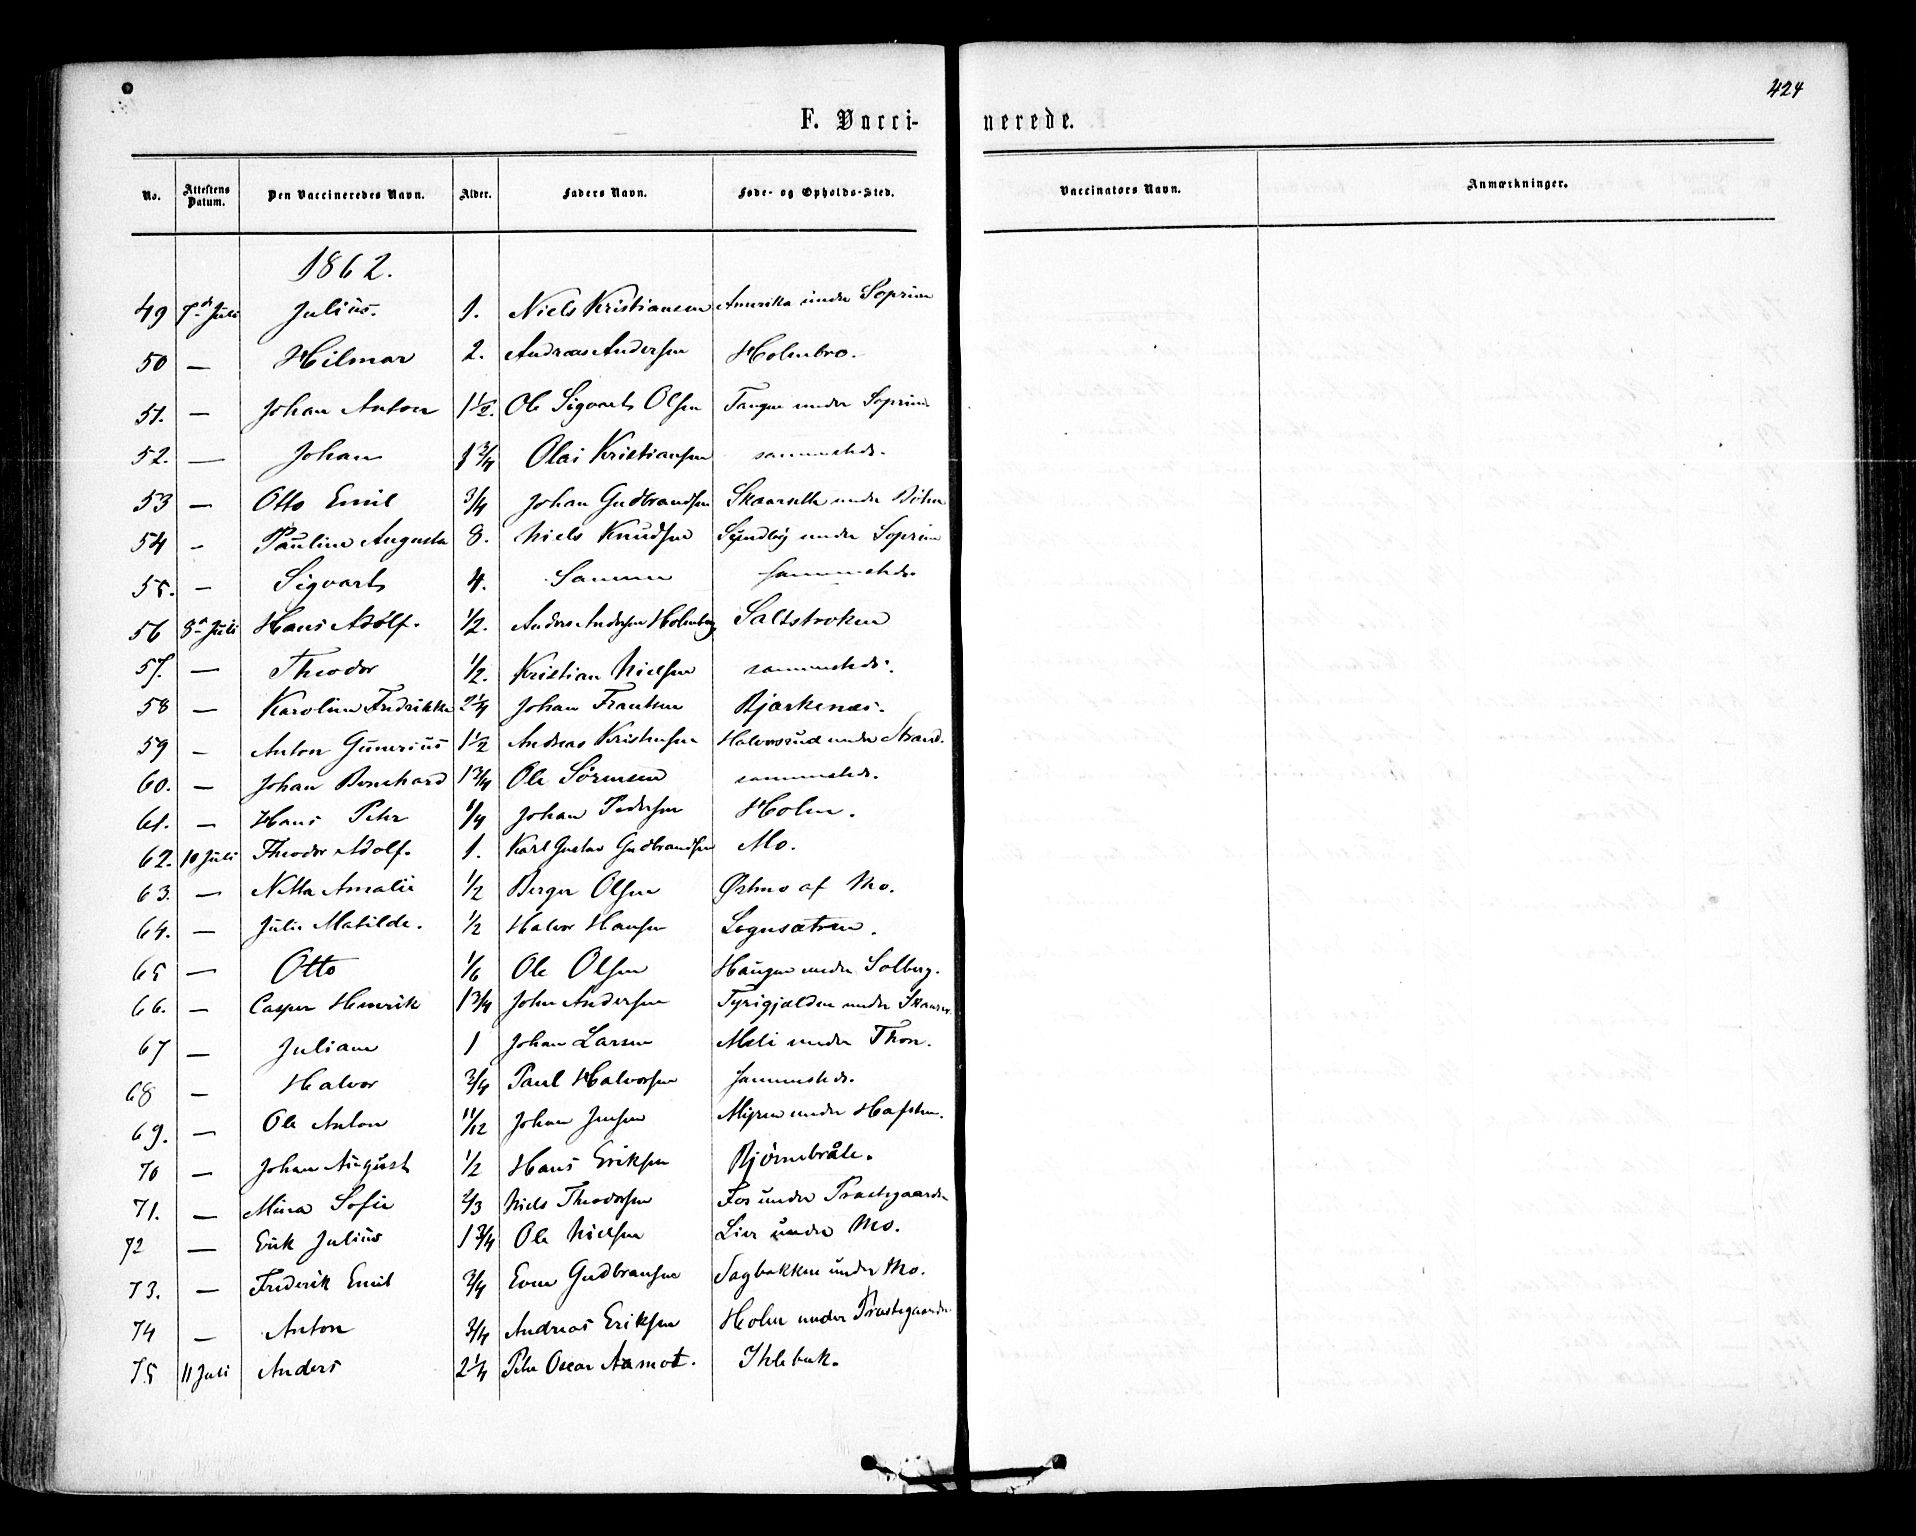 424
F. Vacci- nerede.
No. Attestens Datum. Den Vaccineredes Navn. Alder. Faders Navn. Føde- og Opholds-Sted. Vaccinators Navn. Anmærkninger.
1862.
49 7de Juli Julius. 1. Niels Kristiansen Amerika under
50 — Hilmar 2. Andreas Andersen Holmbro.
51. — Johan Anton 1 1/2. Ole Sigvarts Olsen Tangen under
52. — Johan 1 3/4 Olai Kristiansen sammesteds.
53 — Otto Emil 3/4 Johan Gudbrandsen under
54 — Pauline Augusta 8. Niels Knudsen under
55. — Sigvart 4. Samme sammesteds.
56 8de Juli Hans Adolf. 1/2. Anders Andersen Holmberg Saltstroken
57. — Theodor 1/2. Kristian Nielsen sammesteds.
58 — Karoline Fredrikke 2 1/4 Johan Frantsen Bjerkenæs.
59 — Anton Gunerius 1 1/2 Andreas Kristensen Halvorsrud under Strand.
60. — Johan Bernhard 1 3/4 Ole Sørensen sammesteds.
61. — Hans Peter 1/4 Johan Pedersen Holm.
62. 10 Juli Theodor Adolf. 1. Karl Gustav Gudbrandsen Mo.
63. — Netta Amalie 1/2 Berger Olsen Østmo af Mo.
64. — Julie Matilde. 1/2 Halvor Hansen
65 — Otto 1/6 Ole Olsen Haugen under Solberg.
66. — Casper Henrik 1 3/4 John Andersen Tyrigjælden under
67 — Juliane 1 Johan Larsen under Thon.
68 — Halvor 3/4 Paul Halvorsen sammesteds.
69. — Ole Anton 11/12 Johan Jensen Myren under
70 — Johan August 1/2 Hans Eriksen Bjørnebråte.
71. — Mina Sofie 2/3 Niels Theodorsen For under Præstegaarden
72 — Erik Julius 1 3/4 Ole Nielsen Lier under Mo.
73. — Frederik Emil 3/4 Even Gudbransen Sagbakken under Mo.
74 — Anton 3/4 Andreas Eriksen Holm under Præstegaarden
75 11 Juli Anders 2 1/4 Peter Oscar Aamot. Iklebak.